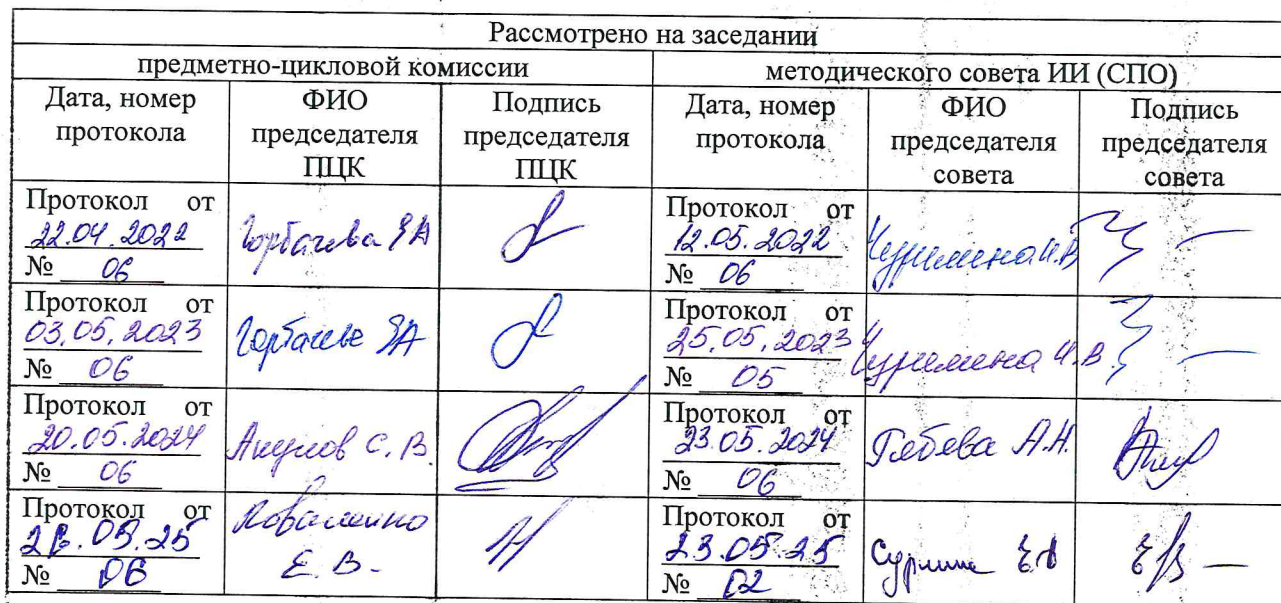 Рассмотрено на заседании
предметно-цикловой комиссии методического совета ИИ (СПО)
Дата, номер протокола
ФИО председателя ПЦК
Подпись председателя ПЦК
Дата, номер протокола
ФИО председателя совета
Подпись председателя совета
Протокол от
22.04.2022
№ 06
Горбачева ЯА
Протокол от
12.05.2022
№ 06
Чурилина И.В
Протокол от
03.05.2023
№ 06
Горбачева ЯА
Протокол от
25.05.2023
№ 05
Чурилина И.В
Протокол от
20.05.2024
№ 06
Акулов С.В.
Протокол от
23.05.2024
№ 06
А.Н.
Протокол от
05.25
№ 06
Е.В.
Протокол от
23.05.25
№ 02